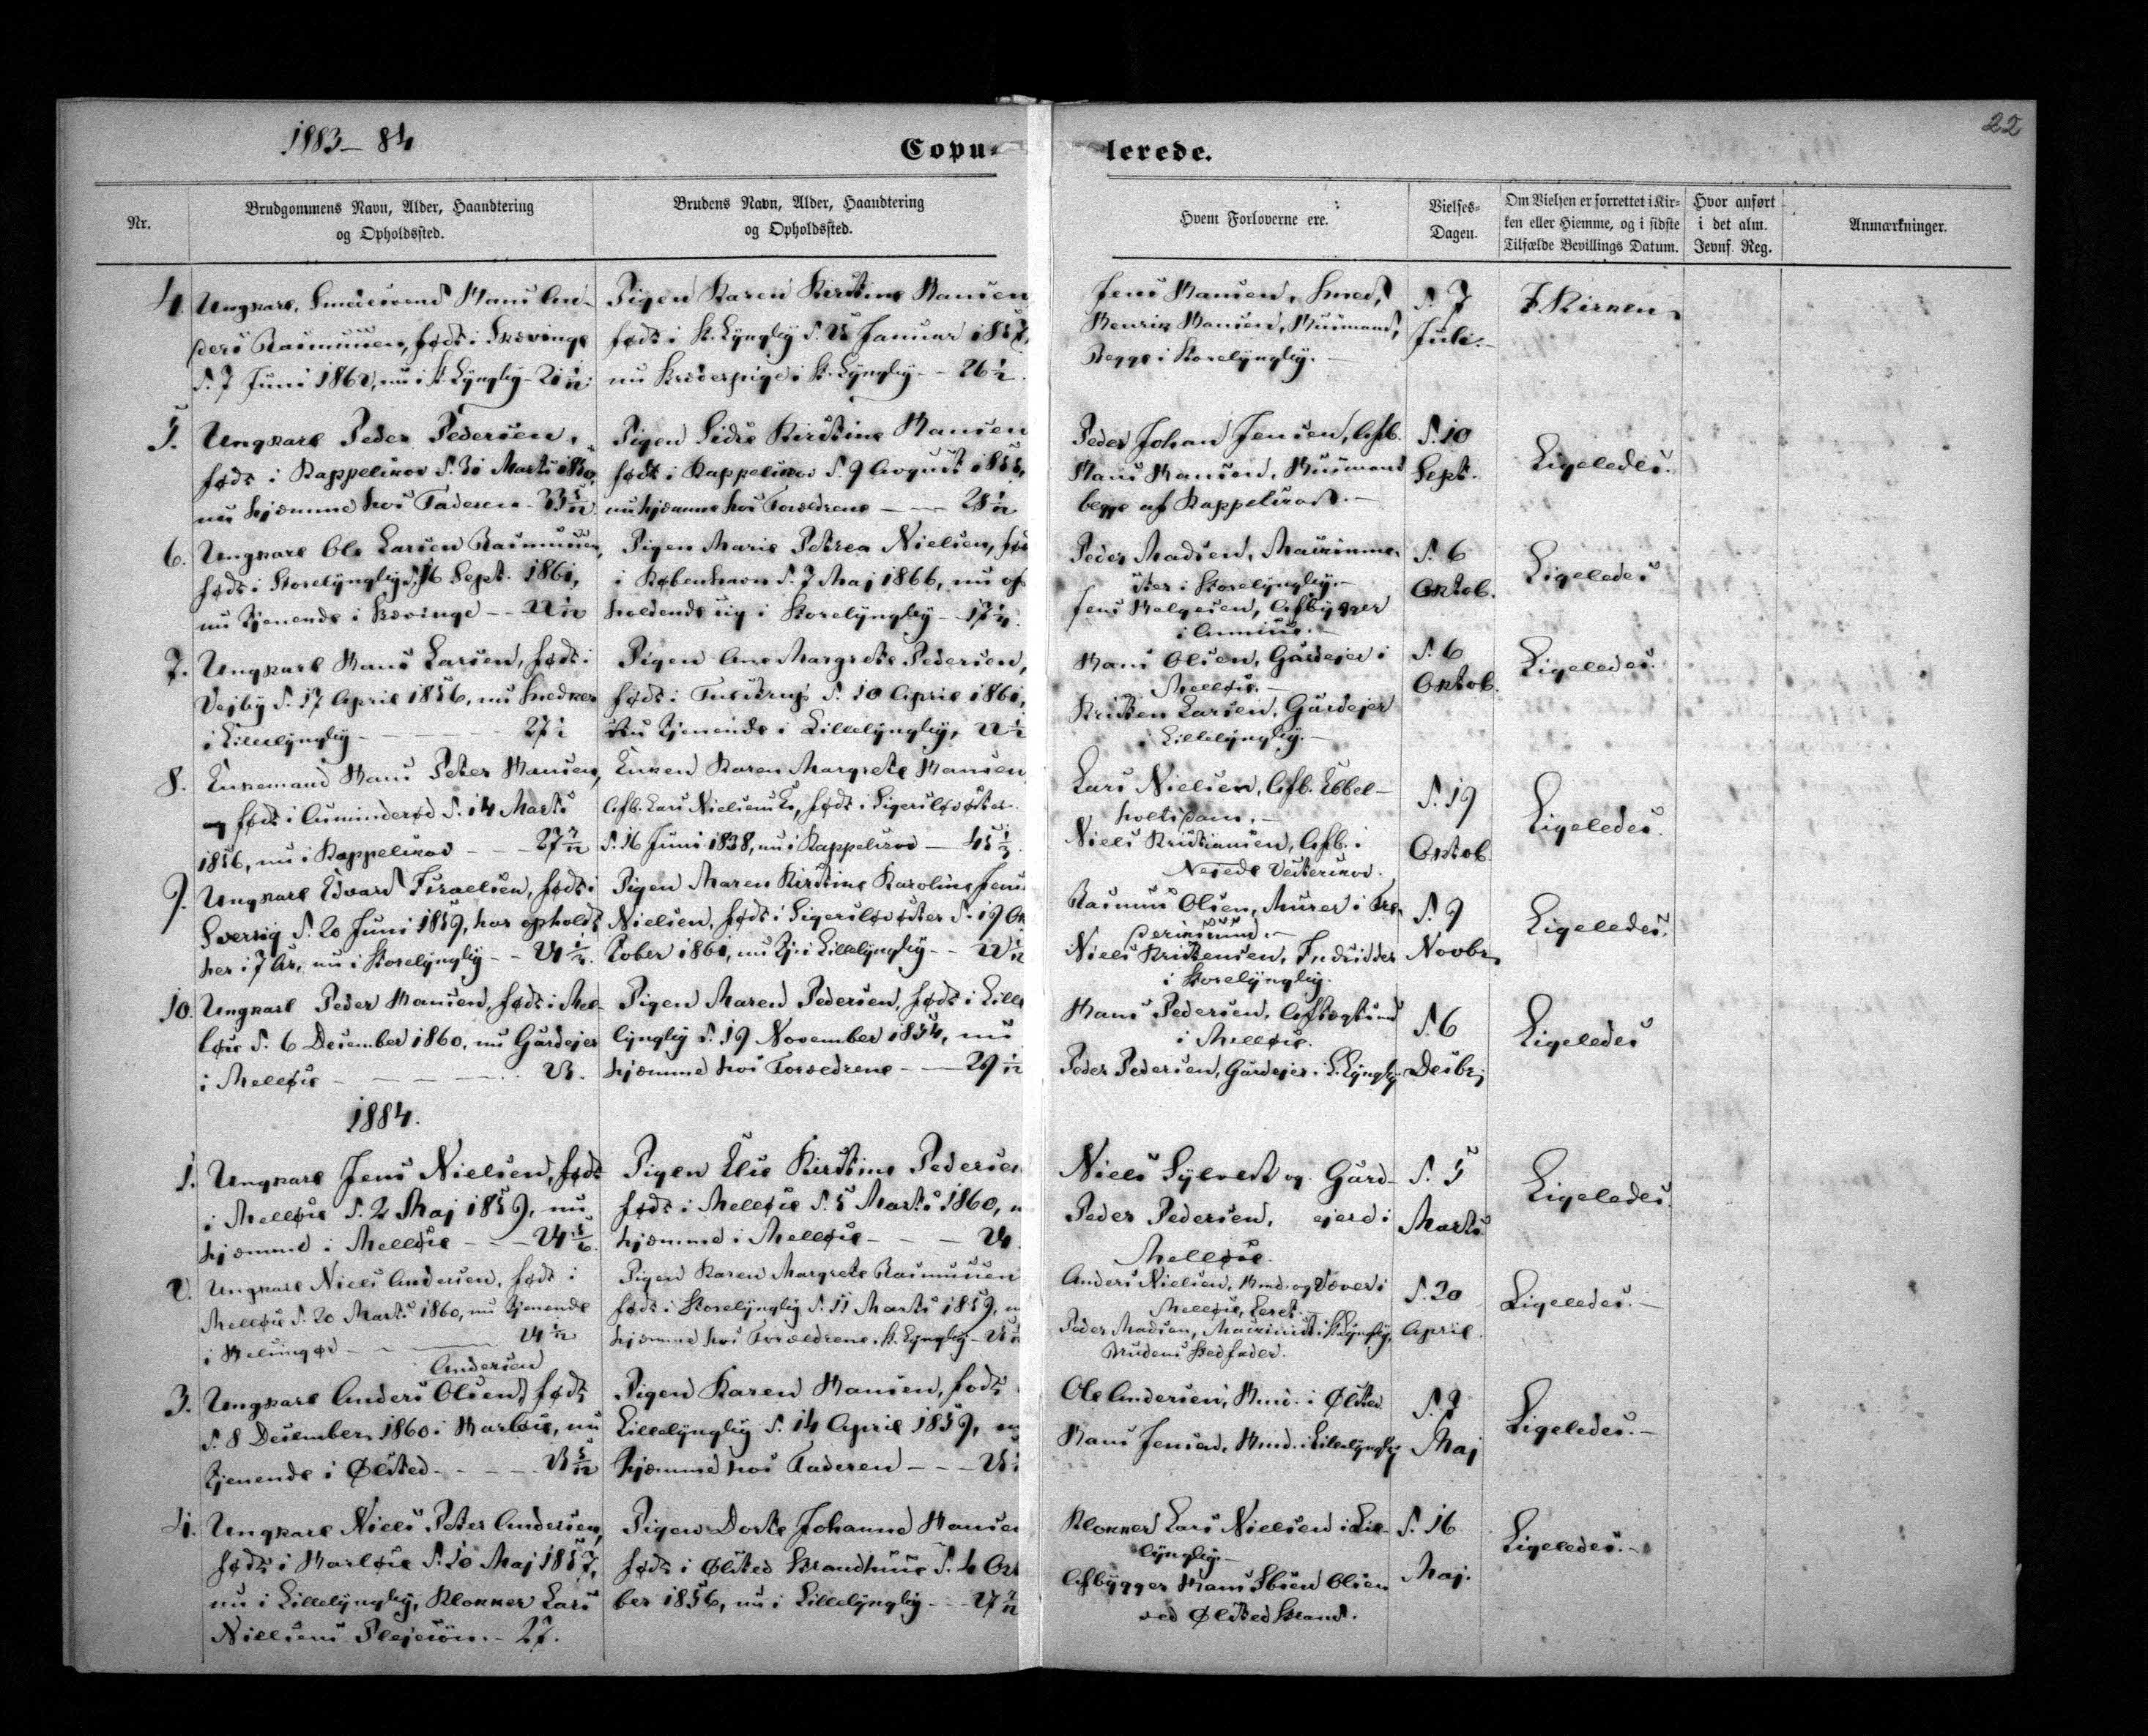 1883-84
22
Copu-
lerede.
Nr.
Brudgommens Navn, Alder, Haandtering
og Opholdssted.
Brudens Navn, Alder, Haandtering
og Opholdssted.
Hvem Forloverne ere.
Vielses-
Dagen.
Om Vielsen er forrettet i Kir-
ken eller Hiemme, og i sidste
Tilfælde Bevillings Datum.
Hvor anført
i det alm.
Jevnf. Reg.
Anmærkninger.
4.
Ungkarl, Smedesvend Hans An-
ders Rasmussen, født i Skævinge
d. 7 Juni 1862, nu i St. Lyngby - 21 1/12.
Pigen Karen Kirstine Hansen
født i St. Lyngby d. 25 Januar 1857,
nu Skræderpige i St. Lyngby - 26 1/2.
Jens Hansen, Smed,
Henrik Hansen, Husmand,
Begge i Storelyngby.
d. 7
Juli.
I Kirken.
5.
Ungkarl Peder Pedersen,
født i Kappelskov d. 31 Marts 1850,
nu hjemme hos Faderen - 33 5/12
Pigen Sidse Kirstine Hansen
født i Kappelskov d. 9 August 1855,
nu hjemme hos Forældrene - 28 1/12
Peder Johan Jensen, Aftb.
Hans Hansen, Husmand
begge af Kappelskov.
d. 10
Sept.
Ligeledes.
6.
Ungkarl Ole Larsen Rasmussen,
født i Storelyngby d. 16 Sept. 1861,
nu tjenende i Skævinge - 22 1/12
Pigen Marie Petrea Nielsen, fød
i København d. 7 Maj 1866, nu op
holdende sig i Storelyngby - 17
Peder Madsen, Murmme-
ster i Storelyngby.
Jens Helgesen, Aftbygger
i Annisse.
d. 6
Oktob.
Ligeledes
7.
Ungkarl Hans Larsen, født i
Vejby d. 17 April 1856, nu Snedker
i Lillelyngby - 27 1/2
Pigen Ane Margrete Pedersen,
født i d. 10 April 1861,
nu tjenende i Lillelyngby, 22 1/2
Hans Olsen, Gårdejer i
Melløse.
Kristen Larsen, Gårdejer
i Lillelyngby.
d. 6
Oktob.
Ligeledes.
8.
Enkemand Hans Peter Hansen,
født i Aminderød d. 14 Marts
1856, nu i Kappelskov - 27 7/12
Enken Karen Margrete Hansen
Aftb. Lars Nielsens E., født i Sigerslevøster
d. 16 Juni 1838, nu i Kappelskov - 45 1/3
Lars Nielsen, Aftb. Ebbel-
holtsdam.
Niels Kristiansen, Aftb. i
Nejede Vesterskov.
d. 19
Oktob.
Ligeledes.
9.
Ungkarl Edvard Israelsen, født i
Sverrig d. 20 Juni 1859, har opholdt
her i 7 År, nu i Storelyngby - 24 1/2.
Pigen Maren Kirstine Karoline Jens
Nielsen, født i Sigerslevøster d. 19 Ok
tober 1861, nu tj. i Lillelyngby - 22 1/12
Rasmus Olsen, Murer i Fre-
deriksund.
Niels Kristensen, Indsidder
i Storelyngby.
d. 9
Novbr.
Ligeledes.
10.
Ungkarl Peder Hansen, født i Mel-
løse d. 6 December 1860, nu Gårdejer
i Melløse - 23.
Pigen Maren Pedersen, født i Lille
lyngby d. 19 November 1854, nu
hjemme hos Forældrene - 29 1/12
Hans Pedersen, Aftægtsmd
i Melløse.
Peder Pedersen, Gårdejer i L. Lyngby
d. 6
Desbr.
Ligeledes
1884.
1.
Ungkarl Jens Nielsen, født
i Melløse d. 2 Maj 1859, nu
hjemme i Melløse - 24 5/6.
Pigen Else Kirstine Pedersen
født i Melløse d. 5 Marts 1860, n
hjemme i Melløse - 24.
Niels Sylvest og Gård-
Peder Pedersen, ejere i
Melløse.
d. 5
Marts.
Ligeledes.
2.
Ungkarl Niels Andersen, født i
Melløse d. 20 Marts 1860, nu tjenende
i Helsingør - 24 1/12
Pigen Karen Margrete Rasmussen
født i Storelyngby d. 11 Marts 1859, n
hjemme hos Forældrene, St. Lyngby - 25
Anders Nielsen, Hmd. og Væver i
Melløse,
Peder Madsen, Murmest. i St. Lyngby,
Brudens Stedfader.
d. 20
April.
Ligeledes.
Andersen
3.
Ungkarl Anders Olsen, født
d. 8 December 1860 i Harløse, nu
tjenende i Ølsted - 23 5/12
Pigen Karen Hansen, født
Lillelyngby d. 14 April 1859, nu
hjemme hos Faderen - 25
Ole Andersen, Hmd. i Ølsted
Hans Jensen, Hmd. i Lillelyngby
d. 9
Maj
Ligeledes.
4.
Ungkarl Niels Peter Andersen,
født i Harløse d. 10 Maj 1857,
nu i Lillelyngby, Klokker Lars
Nielsens Plejesøn - 27.
Pigen Dorte Johanne Hansen
født i Ølsted Strandhuse d. 4 Okt
ber 1856, nu i Lillelyngby - 27 7/12
Klokker Lars Nielsen i Lil-
lyngby.
Aftbygger Hans Ibsen Olsen
ved Ølsted Strand.
d. 16
Maj.
Ligeledes.